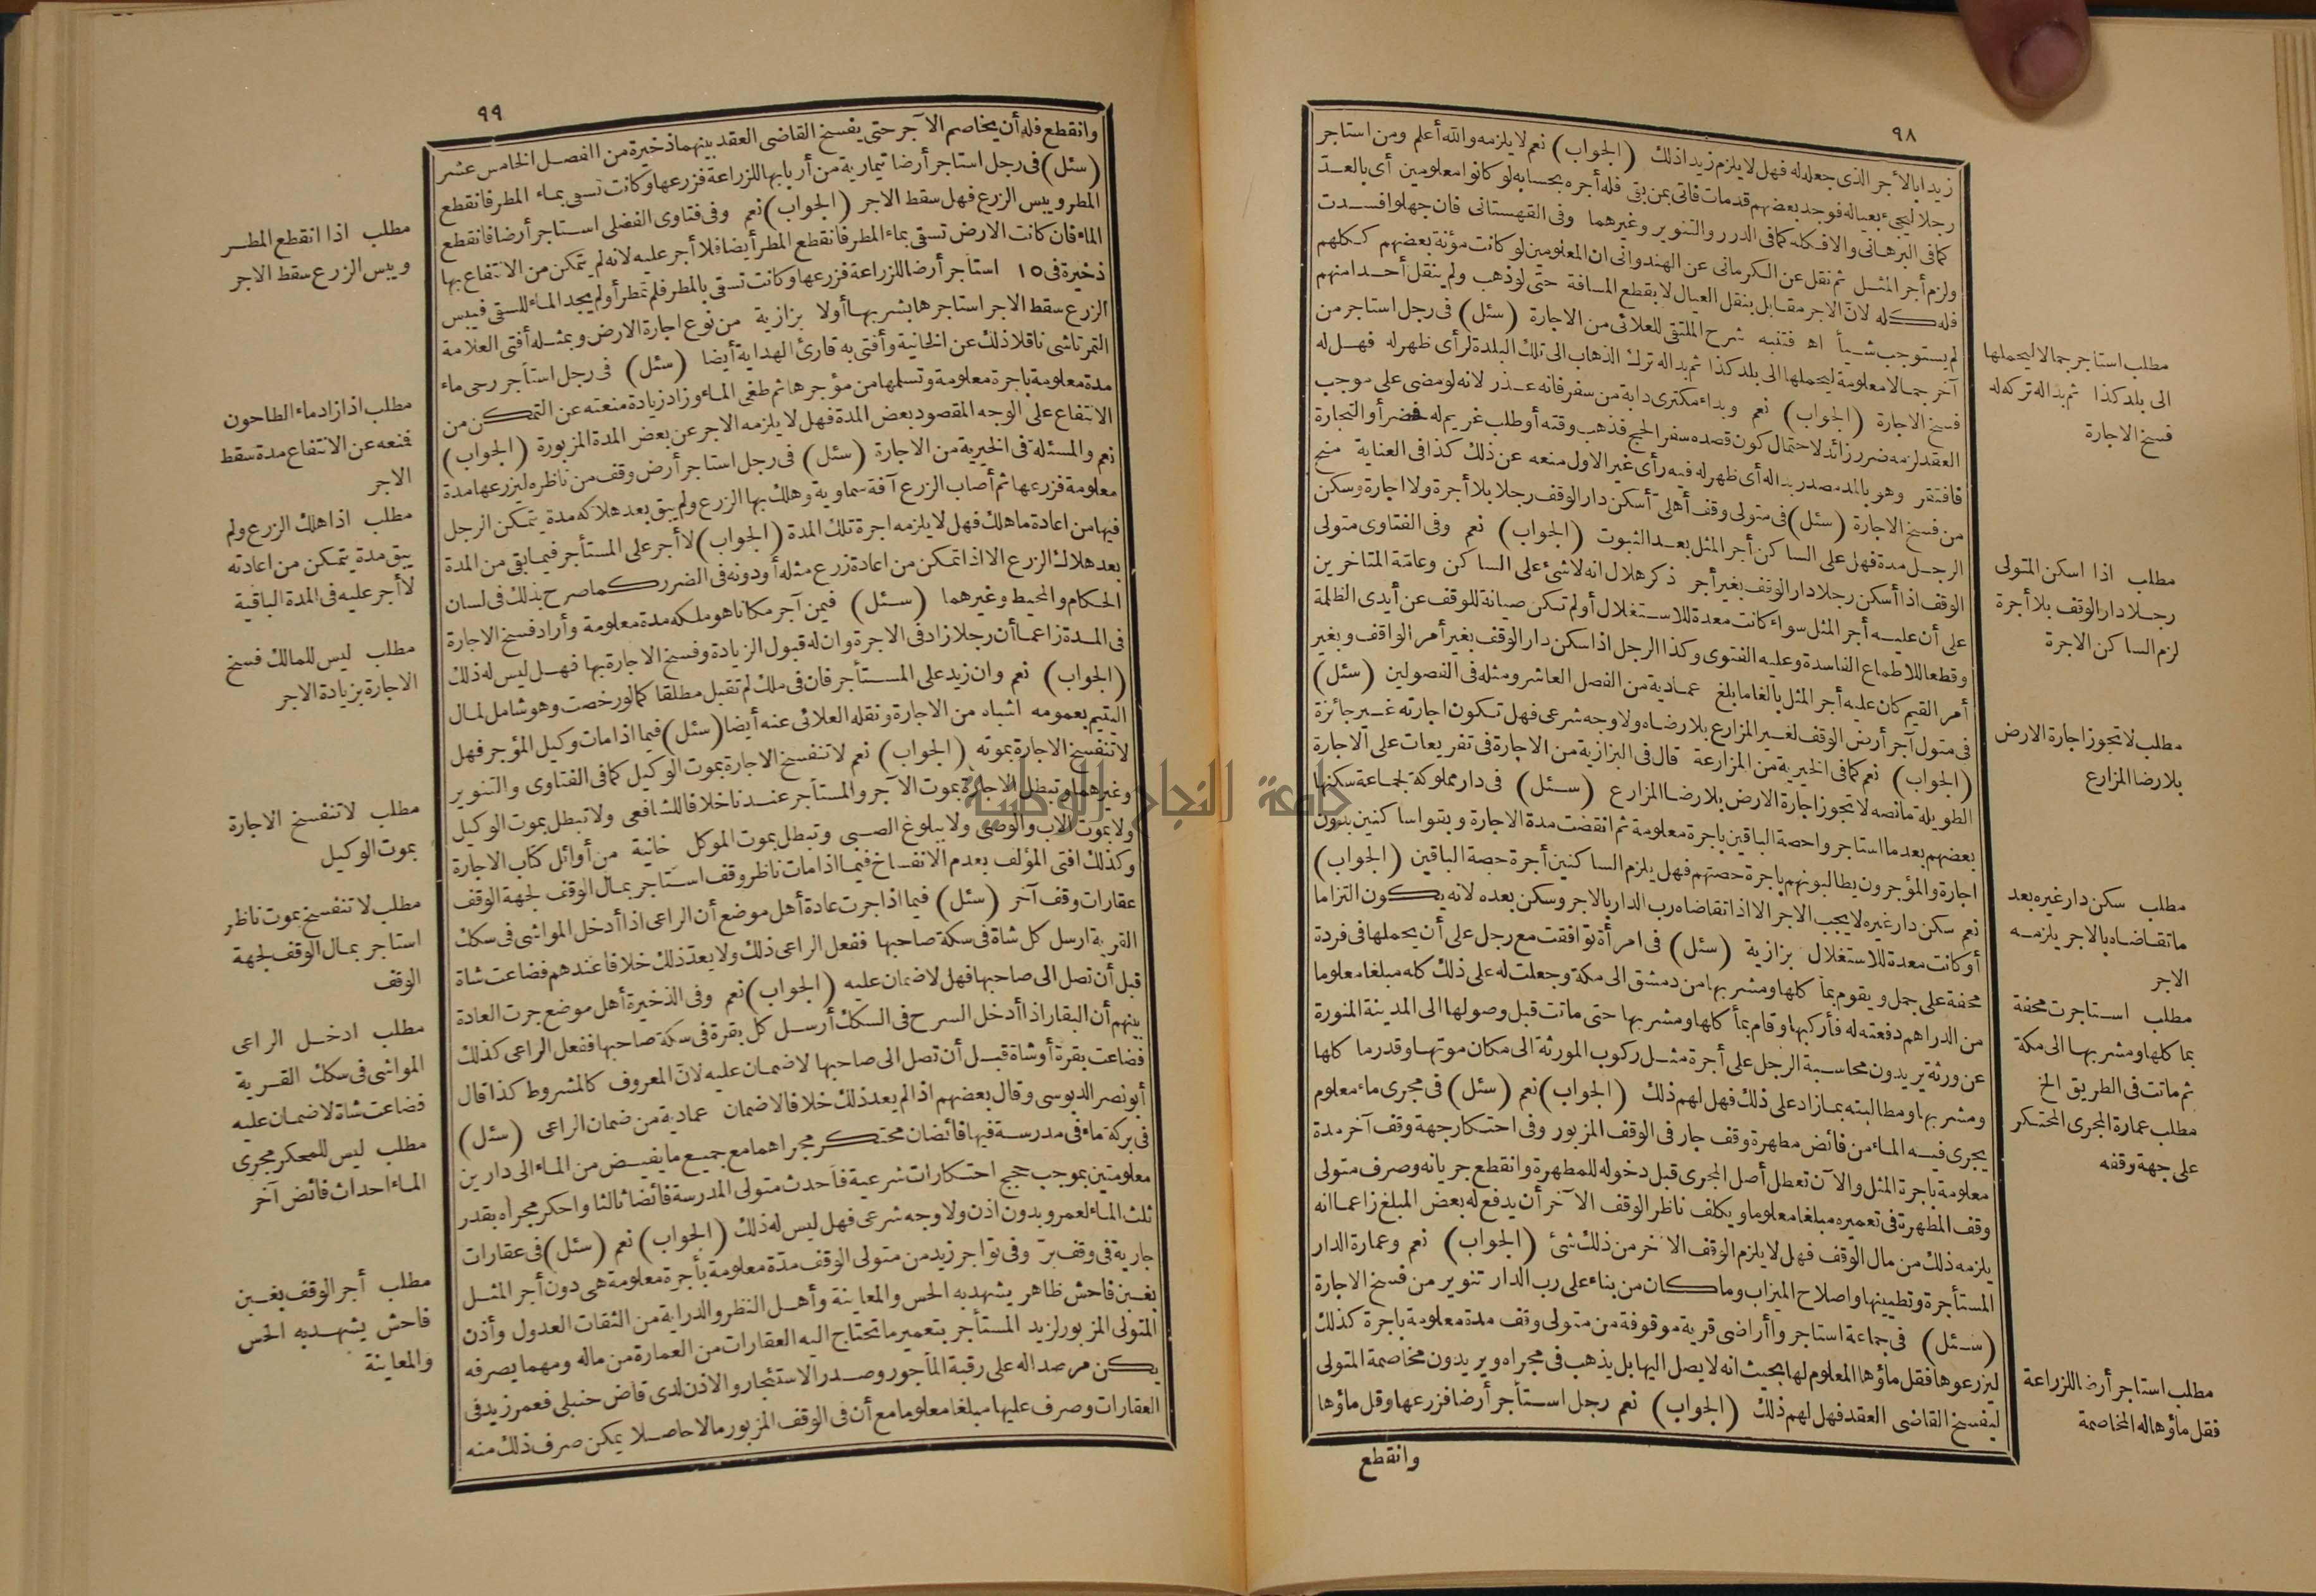 ٩٨
زيدا بالأجر الذى جعله له فهل لا يلزم زيد اذلك (الجواب) نعم لا يلزمه والله أعلم ومن استاجر
رجلا ليجىء بعياله فوجد بعضهم قد مات فاتى بمن بقى فله أجره بحسابه لو كانوا معلومين أى بالعدّ
كما فى البرهانى والا فكله كما فى الدرر والتنوير وغيرهما وفى القهستانى فان جهلوا فسدت
ولزم أجر المثل ثم نقل عن الكرمانى عن الهندوانى ان المعلومين لو كانت مؤنة بعضهم ككلهم
فله كله لان الاجر مقابل بنقل العيال لا بقطع المسافة حتى لو ذهب ولم ينقل أحدا منهم
لم يستوجب شيأ اه فتنبه شرح الملتقى للعلائى من الاجارة (سئل) فى رجل استاجر من
آخر جمالا معلومة ليحملها الى بلد كذا ثم بدا له ترك الذهاب الى تلك البلدة لرأى ظهر له فهل له
فسخ الاجارة (الجواب) نعم وبداء مكترى دابة من سفر فانه عذر لانه لو مضى على موجب
العقد لزمه ضرر زائد لاحتمال كون قصده سفر الحج فذهب وقته أو طلب غريم له فحضر أو التجارة
فافتقر وهو بالمد مصدر بدا له أى ظهر له فيه رأى غير الاول منعه عن ذلك كذا فى العناية منح
من فسخ الاجارة (سئل) فى متولى وقف أهلى أسكن دار الوقف رجلا بلا أجرة ولا اجارة وسكن
الرجل مدة فهل على الساكن أجر المثل بعد الثبوت (الجواب) نعم وفى الفتاوى متولى
الوقف اذا أسكن رجلا دار الوقف بغير أجر ذكر هلال انه لا شئ على الساكن وعامّة المتاخرين
على أن عليه أجر المثل سواء كانت معدة للاستغلال أو لم تكن صيانة للوقف عن أيدى الظلمة
وقطعا للاطماع الفاسدة وعليه الفتوى وكذا الرجل اذا سكن دار الوقف بغير أمر الواقف وبغير
أمر القيم كان عليه أجر المثل بالغا ما بلغ عمادية من الفصل العاشر ومثله فى الفصولين (سئل)
فى متول آجر أرض الوقف لغير المزارع بلا رضاه ولا وجه شرعى فهل تكون اجارته غير جائزة
(الجواب) نعم كما فى الخيرية من المزارعة قال فى البزازية من الاجارة فى تفريعات على الاجارة
الطويلة ما نصه لا تجوز اجارة الارض بلا رضا المزارع (سئل) فى دار مملوكة لجماعة سكنها
بعضهم بعد ما استاجروا حصة الباقين باجرة معلومة ثم انقضت مدة الاجارة وبقوا ساكنين بدون
اجارة والمؤجرون يطالبونهم باجرة حصتهم فهل يلزم الساكنين أجرة حصة الباقين (الجواب)
نعم سكن دار غيره لا يجب الاجر الا اذا تقاضاه رب الدار بالاجر وسكن بعده لانه يكون التزاما
أو كانت معدة للاستغلال بزازية (سئل) فى امرأة توافقت مع رجل على أن يحملها فى فردة
محفة على جمل ويقوم بمأكلها ومشربها من دمشق الى مكة وجعلت له على ذلك كله مبلغا معلوما
من الدراهم دفعته له فأركبها وقام بمأكلها ومشربها حتى ماتت قبل وصولها الى المدينة المنورة
عن ورثة يريدون محاسبة الرجل على أجرة مثل ركوب المورثة الى مكان موتها وقدر مأكلها
ومشربها ومطالبته بما زاد على ذلك فهل لهم ذلك (الجواب) نعم (سئل) فى مجرى ماء معلوم
يجرى فيه الماء من فائض مطهرة وقف جار فى الوقف المزبور وفى احتكار جهة وقف آخر مدة
معلومة باجرة المثل والآن تعطل أصل المجرى قبل دخوله للمطهرة وانقطع جريانه وصرف متولى
وقف المطهرة فى تعميره مبلغا معلوما ويكلف ناظر الوقف الآخر أن يدفع له بعض المبلغ زاعما انه
يلزمه ذلك من مال الوقف فهل لا يلزم الوقف الآخر من ذلك شئ (الجواب) نعم وعمارة الدار
المستأجرة وتطيينها واصلاح الميزاب وما كان من بناء على رب الدار تنوير من فسخ الاجارة
(سئل) فى جماعة استاجروا أراضى قرية موقوفة من متولى وقف مدة معلومة باجرة كذلك
ليزرعوها فقل ماؤها المعلوم لها بحيث انه لا يصل اليها بل يذهب فى مجراه ويريدون مخاصمة المتولى
ليفسخ القاضى العقد فهل لهم ذلك (الجواب) نعم رجل استأجر أرضا فزرعها وقل ماؤها
وانقطع
مطلب استاجر جمالا ليحملها
الى بلد كذا ثم بدا له تركه له
فسخ الاجارة
مطلب اذا اسكن المتولى
رجلا دار الوقف بلا أجرة
لزم الساكن الاجرة
مطلب لا تجوز اجارة الارض
بلا رضا المزارع
مطلب سكن دار غيره بعد
ما تقاضاه بالاجر يلزمه
الاجر
مطلب استاجرت محفة
بمأكلها ومشربها الى مكة
ثم ماتت فى الطريق الخ
مطلب عمارة المجرى المحتكر
على جهة وقفه
مطلب استاجر أرضا للزراعة
فقل ماؤها له المخاصمة
٩٩
وانقطع فله أن يخاصم الآجر حتى يفسخ القاضى العقد بينهما ذخيرة من االفصل الخامس عشر
(سئل) فى رجل استاجر أرضا تيمارية من أربابها للزراعة فزرعها وكانت تسقى بماء المطر فانقطع
المطر ويبس الزرع فهل سقط الاجر (الجواب) نعم وفى فتاوى الفضلى استاجر أرضا فانقطع
الماء فان كانت الارض تسقى بماء المطر فانقطع المطر أيضا فلا أجر عليه لانه لم يتمكن من الانتفاع بها
ذخيرة فى ١٥ استأجر أرضا للزراعة فزرعها وكانت تسقى بالمطر فلم تمطر أو لم يجد الماء للسقى فيبس
الزرع سقط الاجر استاجرها بشربها أولا بزازية من نوع اجارة الارض وبمثله أفتى العلامة
التمرتاشى ناقلا ذلك عن الخانية وأفتى به قارئ الهداية أيضا (سئل) فى رجل استأجر رحى ماء
مدة معلومة باجرة معلومة وتسلمها من مؤجرها ثم طغى الماء وزاد زيادة منعته عن التمكن من
الانتفاع على الوجه المقصود بعض المدة فهل لا يلزمه الاجر عن بعض المدة المزبورة (الجواب)
نعم والمسئلة فى الخيرية من الاجارة (سئل) فى رجل استاجر أرض وقف من ناظره ليزرعها مدة
معلومة فزرعها ثم أصاب الزرع آفة سماوية وهلك بها الزرع ولم يبق بعد هلاكه مدة يتمكن الرجل
فيها من اعادة ما هلك فهل لا يلزمه اجرة تلك المدة (الجواب) لا أجر على المستأجر فيما بقى من المدة
بعد هلاك الزرع الا اذا تمكن من اعادة زرع مثله أو دونه فى الضرر كما صرح بذلك فى لسان
الحكام والمحيط وغيرهما (سئل) فيمن آجر مكانا هو ملكه مدة معلومة وأراد فسخ الاجارة
فى المدة زاعما أن رجلا زاد فى الاجرة وان له قبول الزيادة وفسخ الاجارة بها فهل ليس له ذلك
(الجواب) نعم وان زيد على المستأجر فان فى ملك لم تقبل مطلقا كما لو رخصت وهو شامل لمال
اليتيم بعمومه اشباه من الاجارة ونقله العلائى عنه أيضا (سئل) فيما اذا مات وكيل المؤجر فهل
لا تنفسخ الاجارة بموته (الجواب) نعم لا تنفسخ الاجارة بموت الوكيل كما فى الفتاوى والتنوير
وغيرهما وتبطل الاجارة بموت الآجر والمستأجر عندنا خلافا للشافعى ولا تبطل بموت الوكيل
ولا بموت الاب والوصى ولا ببلوغ الصبى وتبطل بموت الموكل خانية من أوائل كتاب الاجارة
وكذلك افتى المؤلف بعدم الانفساخ فيما اذا مات ناظر وقف استأجر بمال الوقف لجهة الوقف
عقارات وقف آخر (سئل) فيما اذا جرت عادة أهل موضع أن الراعى اذا أدخل المواشى فى سكك
القرية ارسل كل شاة فى سكة صاحبها ففعل الراعى ذلك ولا يعدّ ذلك خلافا عندهم فضاعت شاة
قبل أن تصل الى صاحبها فهل لا ضمان عليه (الجواب) نعم وفى الذخيرة أهل موضع جرت العادة
بينهم أن البقار اذا أدخل السرح فى السكك أرسل كل بقرة فى سكة صاحبها ففعل الراعى كذلك
فضاعت بقرة أو شاة قبل أن تصل الى صاحبها لا ضمان عليه لان المعروف كالمشروط كذا قال
أبو نصر الدبوسى وقال بعضهم اذا لم يعد ذلك خلافا لا ضمان عمادية من ضمان الراعى (سئل)
فى بركة ماء فى مدرسة فيها فائضان محتكر مجراهما مع جميع ما يفيض من الماء الى دارين
معلومتين بموجب حجج احتكارات شرعية فأحدث متولى المدرسة فائضا ثالثا واحكر مجراه بقدر
ثلث الماء لعمرو بدون اذن ولا وجه شرعى فهل ليس له ذلك (الجواب) نعم (سئل) فى عقارات
جارية فى وقف برّ وفى تواجر زيد من متولى الوقف مدّة معلومة بأجرة معلومة هى دون أجر المثل
بغبن فاحش ظاهر يشهد به الحس والمعاينة وأهل النظر والدراية من الثقات العدول وأذن
المتولى المزبور لزيد المستأجر بتعمير ما تحتاج اليه العقارات من العمارة من ماله ومهما يصرفه
يكن مرصدا له على رقبة المأجور وصدر الاستئجار والاذن لدى قاض حنبلى فعمر زيد فى
العقارات وصرف عليها مبلغا معلوما مع أن فى الوقف المزبور مالا حاصلا يمكن صرف ذلك منه
مطلب اذا انقطع المطر
ويبس الزرع سقط الاجر
مطلب اذا زاد ماء الطاحون
فمنعه عن الانتفاع مدة سقط
الاجر
مطلب اذا هلك الزرع ولم
يبق مدة يتمكن من اعادته
لا أجر عليه فى المدة الباقية
مطلب ليس للمالك فسخ
الاجارة بزيادة الاجر
مطلب لا تنفسخ الاجارة
بموت الوكيل
مطلب لا تنفسخ بموت ناظر
استاجر بمال الوقف لجهة
الوقف
مطلب ادخل الراعى
المواشى فى سكك القرية
فضاعت شاة لا ضمان عليه
مطلب ليس للمحكر مجرى
الماء احداث فائض آخر
مطلب أجر الوقف بغبن
فاحش يشهد به الحس
والمعاينة
جامعة النجاح الوطنية